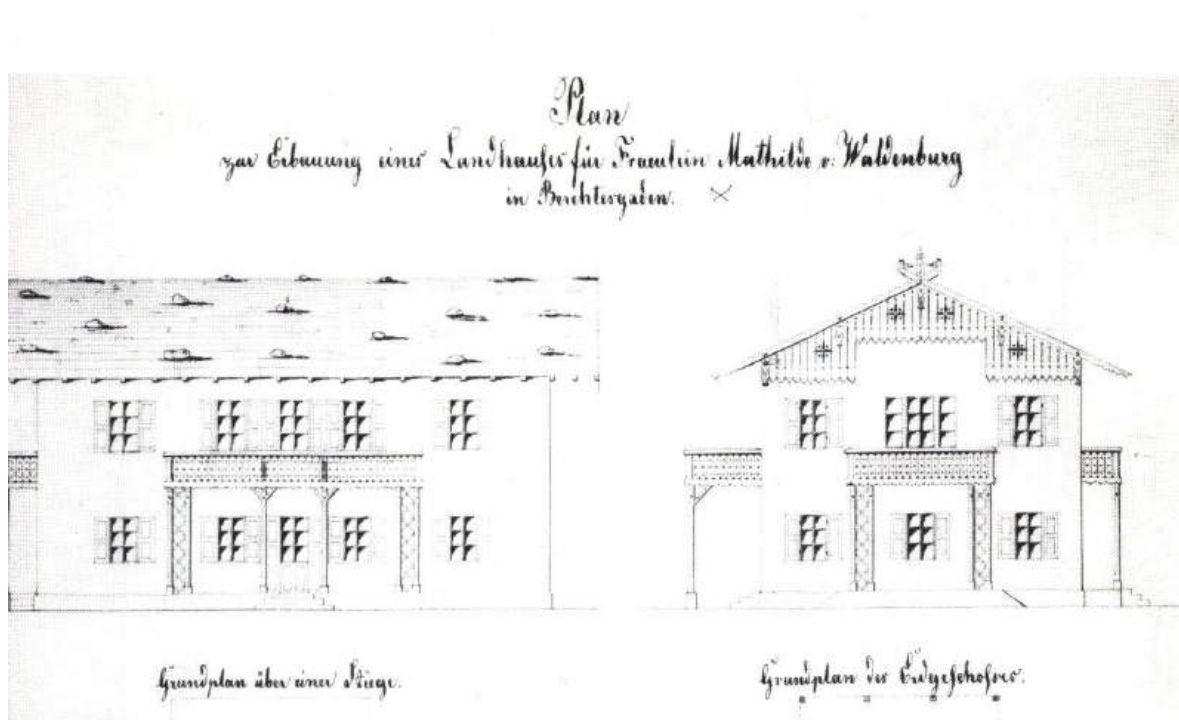 Plan
zur Erbauung eines Landhauses für Fraeulein Mathilde v. Waldenburg
in Berchtesgaden.
Grundplan über einer Stiege.
Grundplan des Erdgeschosses.